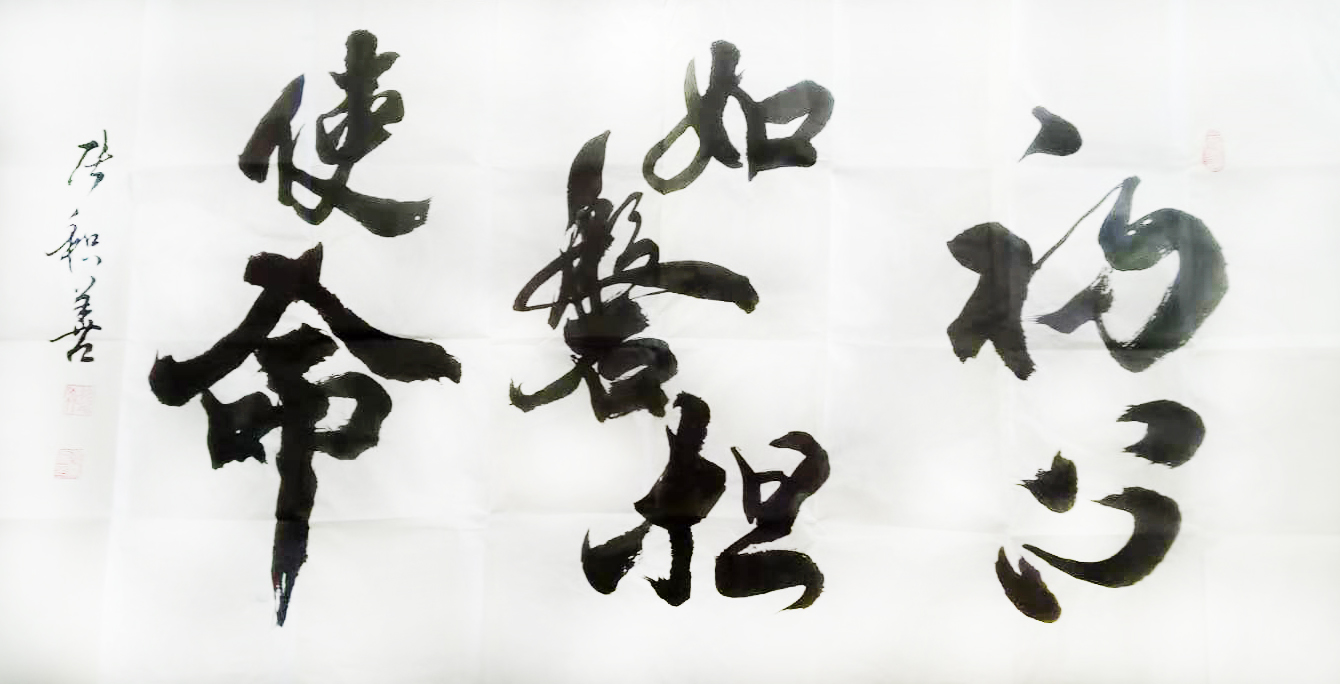 初心
如磐担
使命
张积善